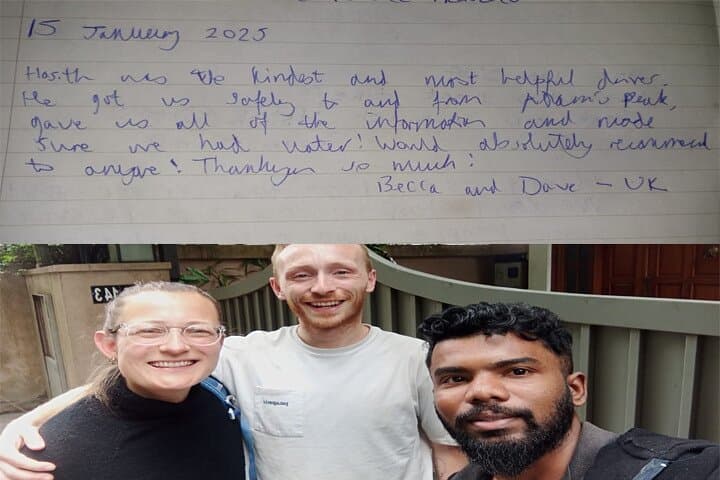 15 January 2025
Hasith was the kindest and most helpful driver.
He got us safely to and from Adam's Peak,
gave us all of the information and made
sure we had water! Would absolutely recommend
to anyone! Thankyou so much!
Becca and Dave - UK
443